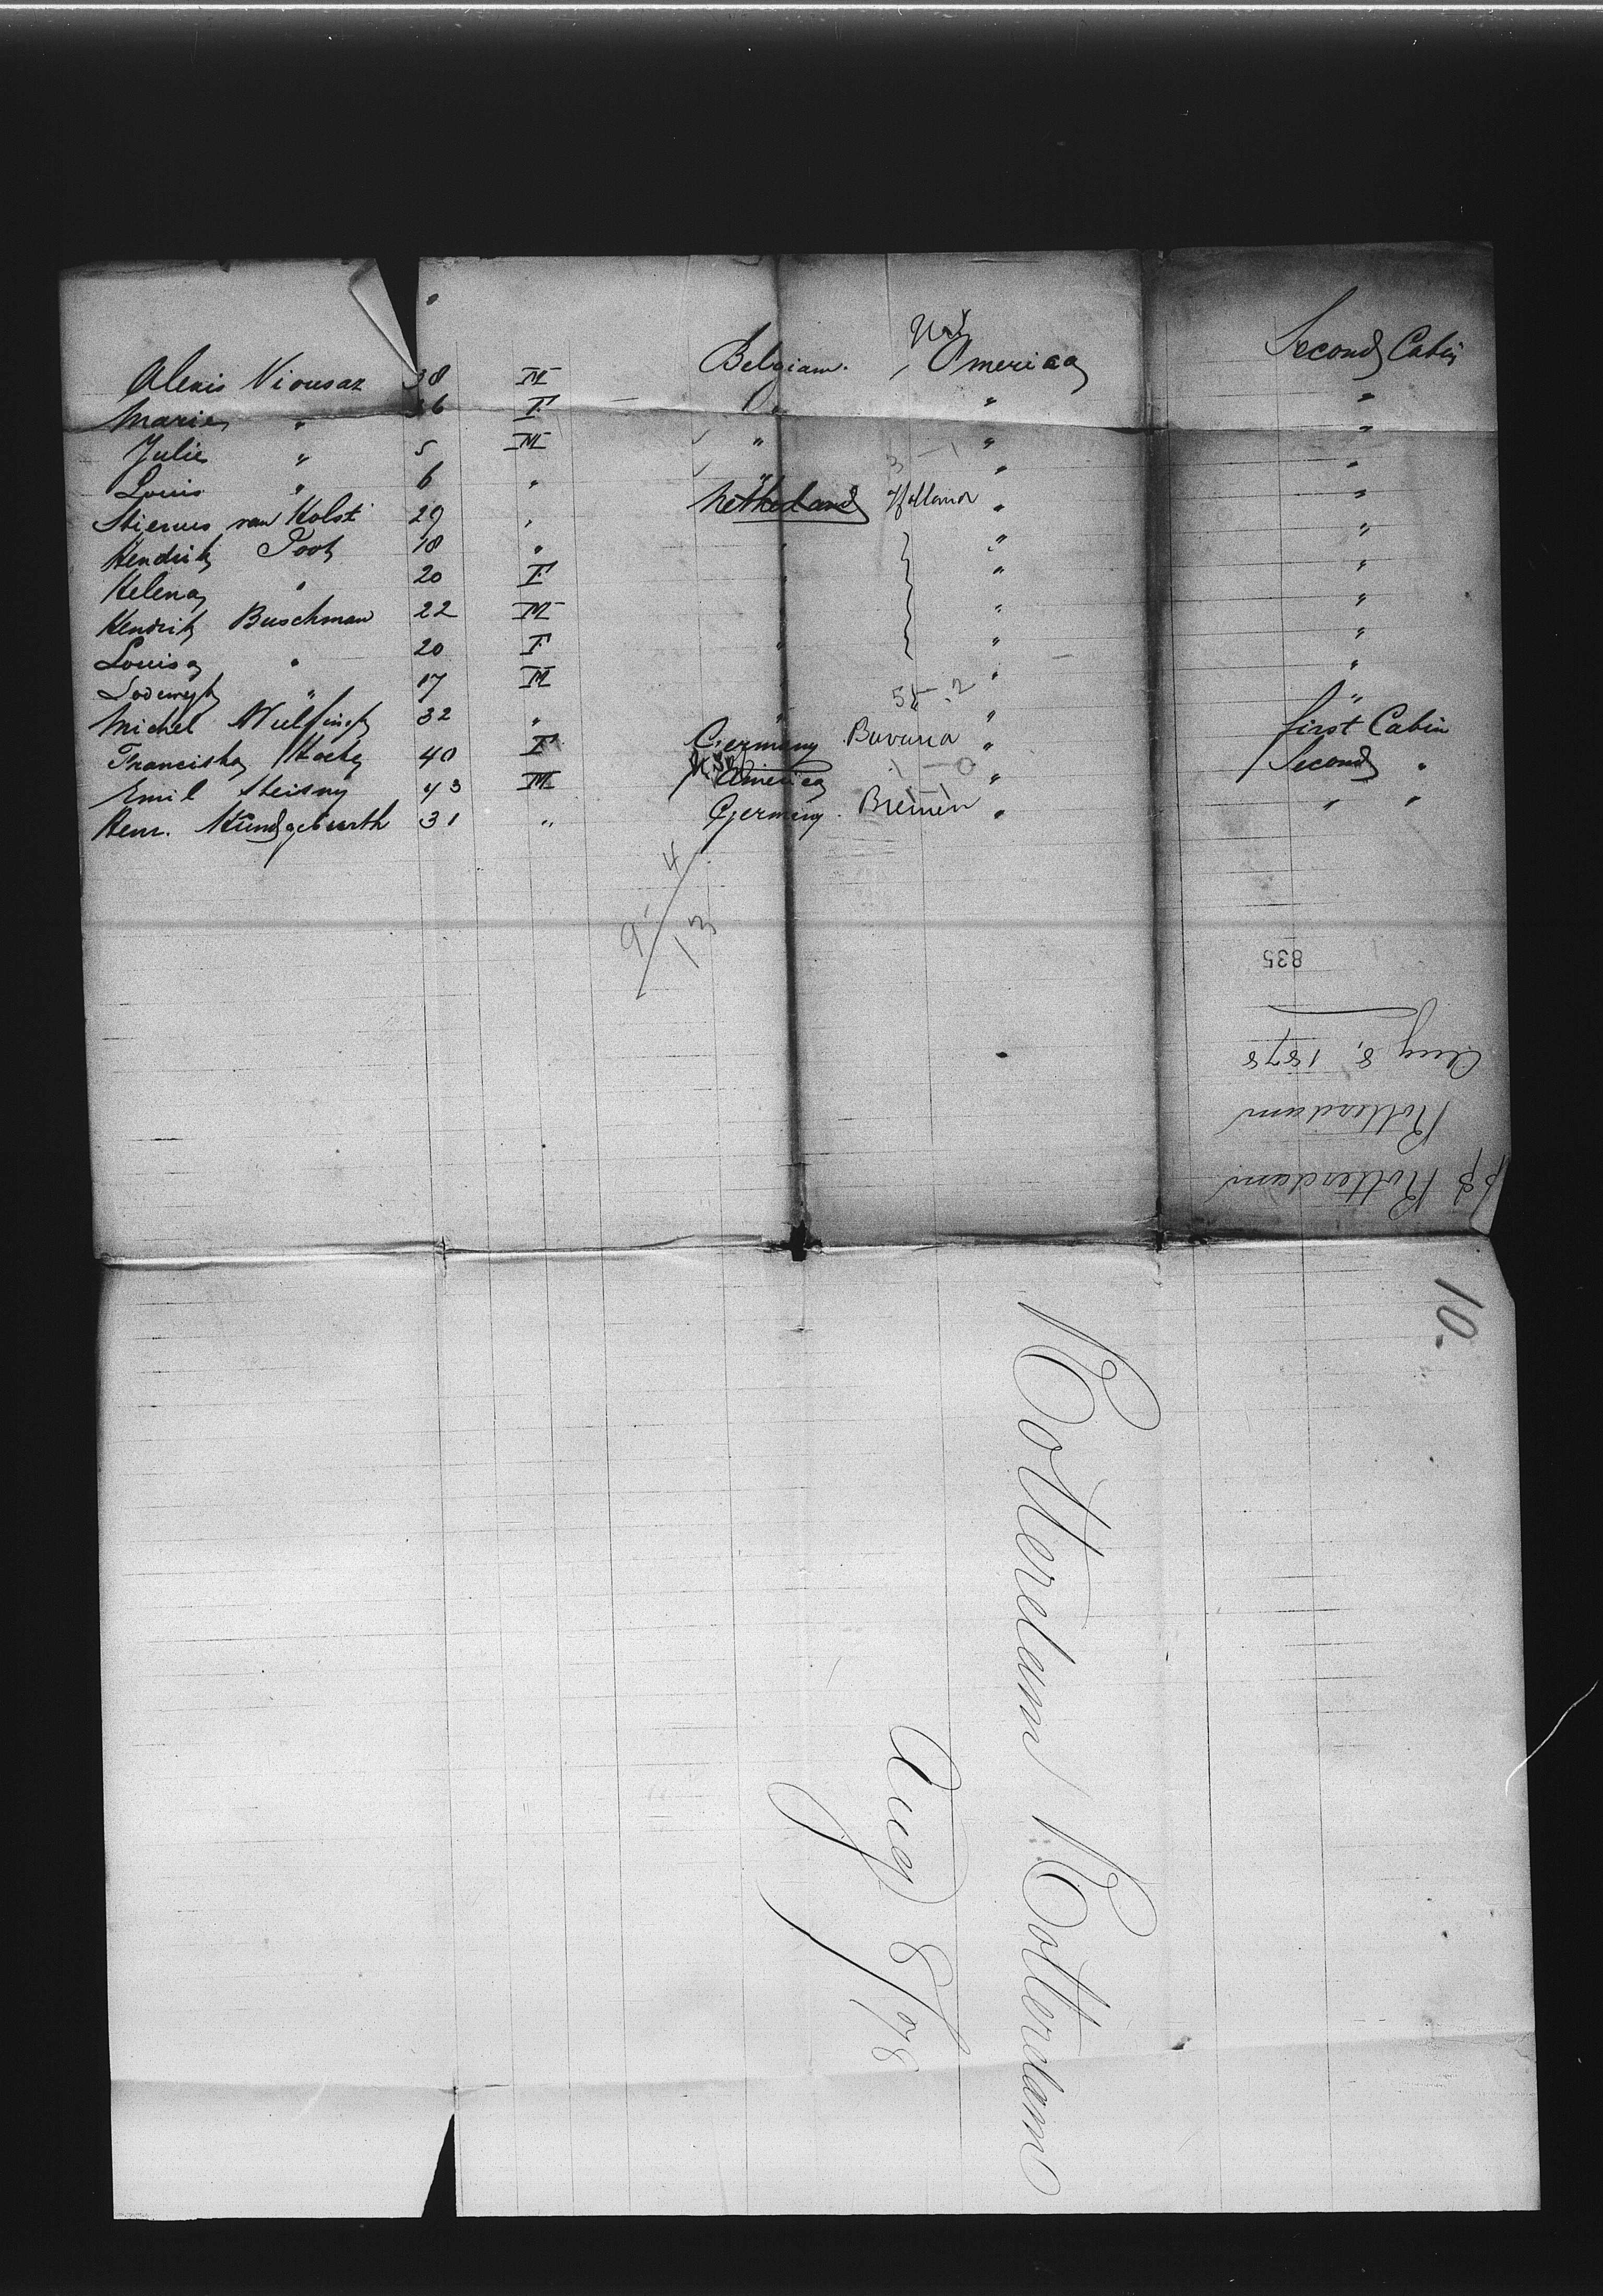 Alexis Viousaz 38 M Belgium. U.S. America Second Cabin
Marie " 36 F " " "
Julie " 5 M " " "
Louis " 6 " " " "
3 – 1
van Holst 29 " Netherland Holland " "
Hendrik Poot 18 " " " "
Helena " 20 F " " "
Hendrik Buschman 22 M " " "
Louisa " 20 F " " "
Lodewyk " 17 M " " "
5 – 2
Michel 32 " " " "
Franciska 40 F Germany Bavaria " first Cabin
1 – 0
Emil 43 M U.S. America " Second "
Henr. Kündgeburth 31 " Germany Bremen " " "
4
9
13
835
Aug 8, 1878
Rotterdam
SS Rotterdam
10.
Rotterdam Rotterdam
Aug 8/78